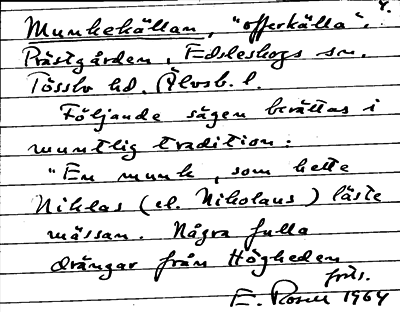 4.
Munkekällan, "offerkälla".
Prästgården, Edsleskogs sn.
Tössbo hd. Älvsb. l.
Följande sägen berättas i
muntlig tradition:
"En munk, som hette
Niklas (el. Nikolaus) läste
mässan. Några fulla
drängar från Högheden
forts.
E. Rosell 1964